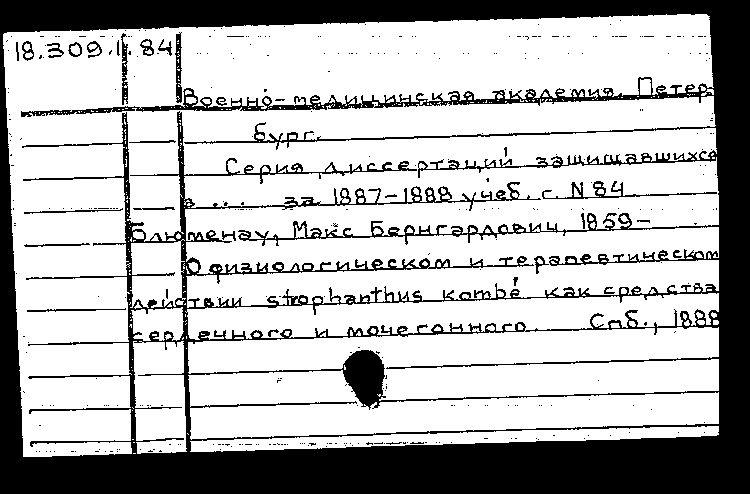 18.309.1.84
Военно-медицинская академия. Петер-
бург.
Серия диссертаций защищавшихся
в ... за 1887-1888 учеб. г. N 84
Блюменау, Макс Бернгардович, 1859-
О физиологическом и терапевтическом
действии strophanthus kombé как средства
сердечного и мочегонного. Спб., 1888